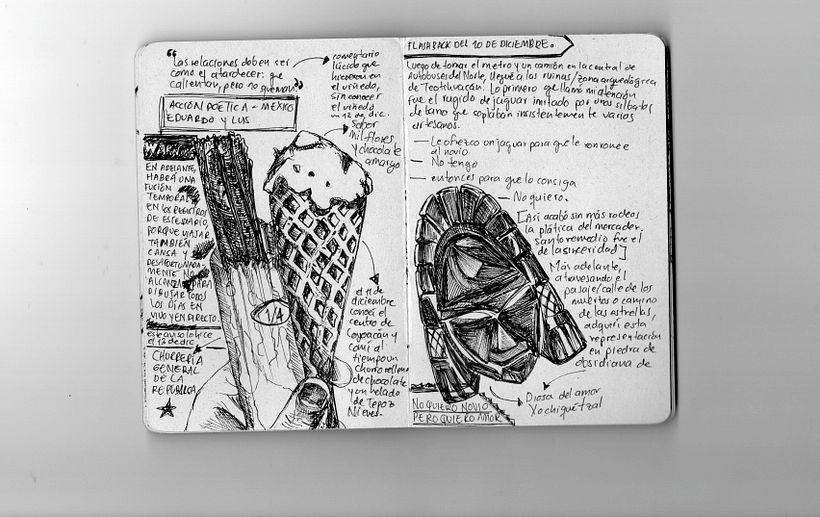 "Las relaciones deben ser
como el atardecer: que
calientan, pero no queman"
ACCIÓN POÉTICA - MÉXICO
EDUARDO Y LUS
comentario
lúcido que
hicieron en
el viñedo,
sin conocer
el viñedo
12 de dic.
Sabor
mil flores
y chocolate
amargo
EN ADELANTE,
HABRÁ UNA
FUSIÓN
TEMPORAL
EN LOS REGISTROS
DE ESTE DIARIO,
PORQUE VIAJAR
TAMBIÉN
CANSA Y
DESAFORTUNADA
MENTE NO
ALCANZARÉ PARA
DIBUJAR TODOS
LOS DÍAS EN
VIVO Y EN DIRECTO.
este aviso lo hice
el 13 de dic
CHURRERÍA
GENERAL
DE LA
REPÚBLICA
1/4
el 11 de
diciembre
conocí el
centro de
Coyoacán y
comí al
tiempo un
churro relleno
de chocolate
y un helado
de Tepoz
Nieves.
FLASHBACK DEL 10 DE DICIEMBRE.
Luego de tomar el metro y un camión en la central de
Autobuses del Norte, llegué a las ruinas/zona arqueológica
de Teotihuacán. Lo primero que llamó mi atención
fue el rugido de jaguar imitado por unos silbatos
de barro que soplaban insistentemente varios
artesanos.
— Le ofrezco un jaguar para que le ronronee
al novio
— No tengo
— entonces para que lo consiga
— No quiero.
[Así acabó sin más rodeos
la plática del mercader,
santo remedio fue el
de la sinceridad]
Más adelante,
atravesando el
pasaje/calle de los
muertos o camino
de las estrellas,
adquirí esta
representación
en piedra de
obsidiana de
Diosa del amor
Xochiquétzal
NO QUIERO NOVIO
PERO QUIERO AMOR